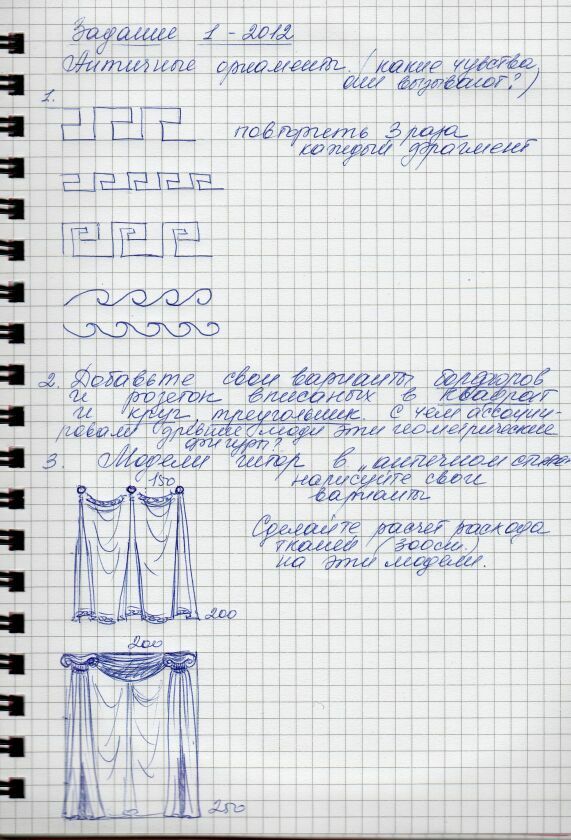 Задание 1 - 2012
Античные орнаменты. (какие чувства
они вызывают?)
1.
повторить 3 раза
каждый фрагмент
2. Добавьте свои варианты бордюров
и розеток вписаных в квадрат
и круг, треугольник. С чем ассоции-
ровали древние люди эти геометрические
фигуры?
3. Модели штор в "античном стиле
нарисуйте свои
варианты
150
Сделайте расчет расхода
тканей (300см.)
на эти модели.
200
200
250